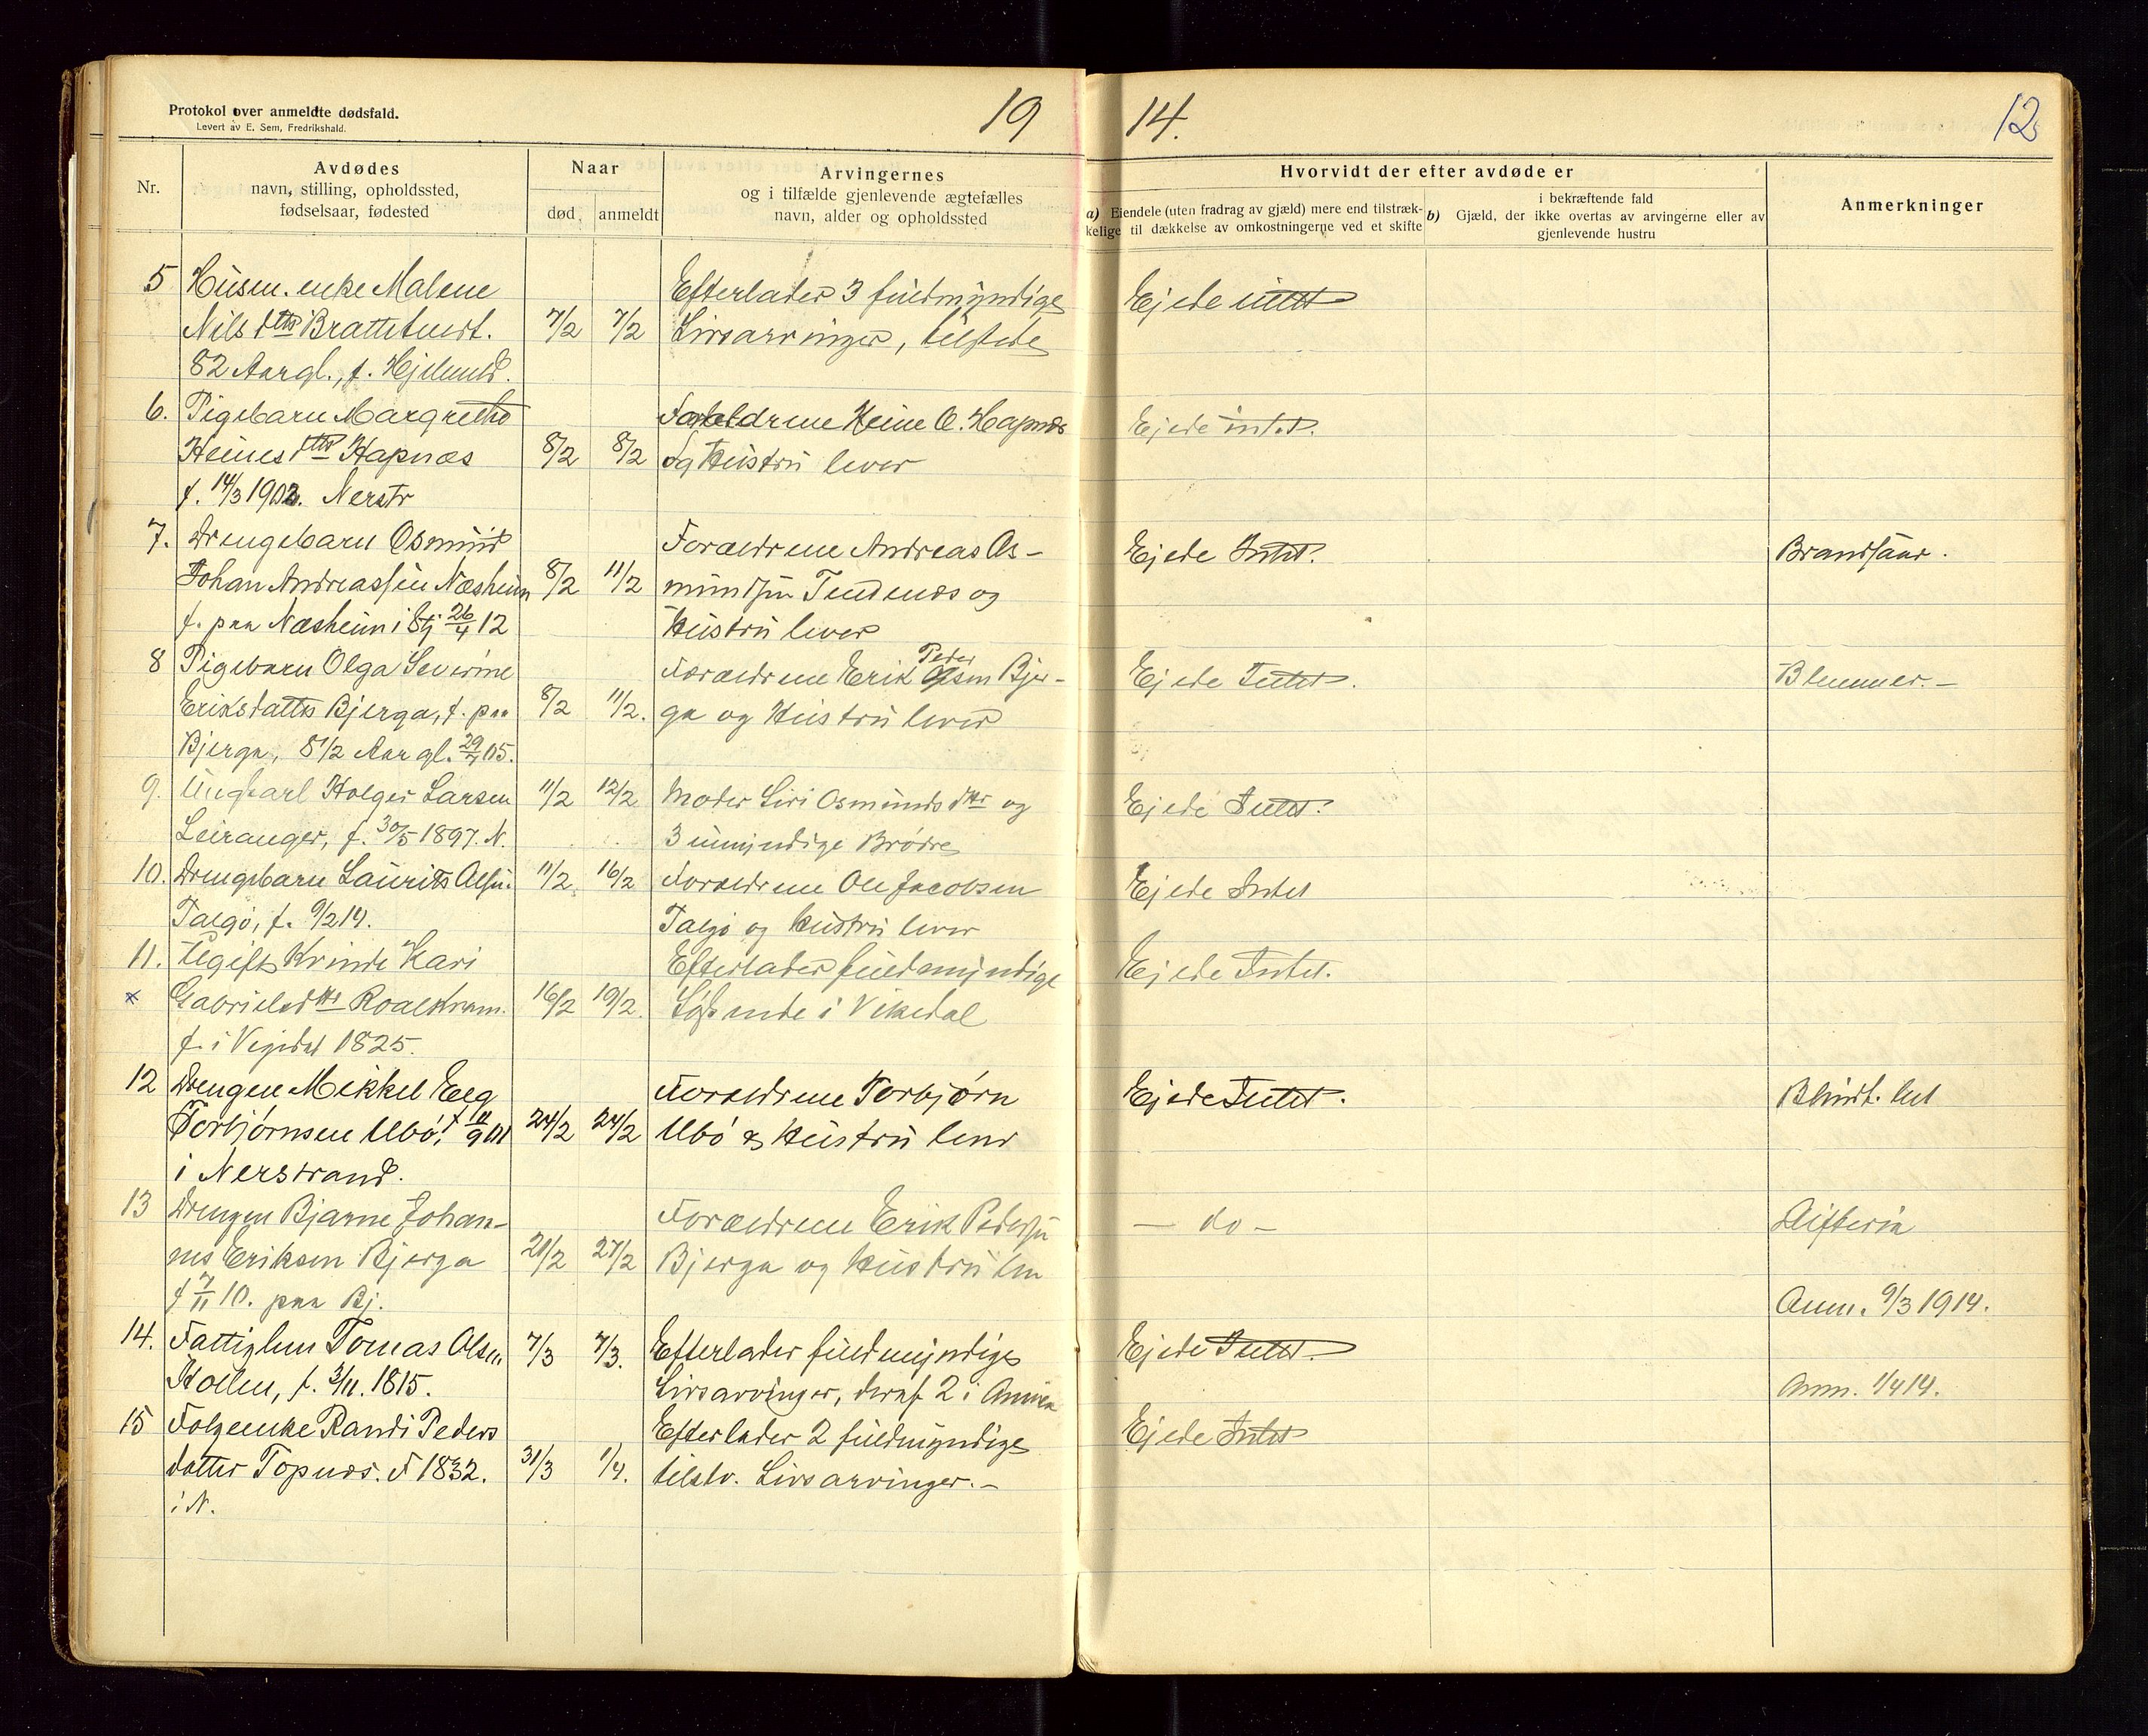 Protokol over anmeldte dødsfald.
Levert av E. Sem, Fredrikshald.
19 14. 12
Nr.
Avdødes
navn, stilling, opholdssted,
fødselsaar, fødested
Naar
død anmeldt
Arvingernes
og i tilfælde gjenlevende ægtefælles
navn, alder og opholdssted
Hvorvidt der efter avdøde er
a) Eiendele (uten fradrag av gjæld) mere end tilstræk-
kelige til dækkelse av omkostningerne ved et skifte
i bekræftende fald
b) Gjæld, der ikke overtas av arvingerne eller av
gjenlevende hustru
Anmerkninger
5 Husm. enke Malene Efterlader 3 fuldmyndige Ejede intet
Nils dtr Brattetveit. 7/2 7/2 Livsarvinger, tilstede
82 Aar gl., f. Hjelmel.
6. Pigebarn Margrethe Forældrene Heine O. Hapnæs Ejede intet.
Heines dtr Hapnæs 8/2 8/2 og Hustru lever
f. 14/3 1903. Nerstr
7. Drengebarn Osmund Forældrene Andreas Os- Ejede Intet. Brandsaar.
Johan Andreassen Næsheim 8/2 11/2 mundsen Tendenæs og
f. paa Næsheim i Sj 26/4 12 Hustru lever
8 Pigebarn Olga Severine Forældrene Erik Peder Olsen Bjer- Ejede Intet.
Eriksdatter Bjerga, f. paa 8/2 11/2. ga og Hustru lever
Bjerga, 8 1/2 Aar gl. 05.
9. Ungkarl Holger Larsen 11/2 12/2 Moder Siri Osmunds dtr og Ejede Intet.
Leiranger, f. 30/5 1897. N. 3 umyndige Brødre
10. Drengebarn Laurits Olsen 11/2 16/2 Forældrene Ole Jacobsen Ejede Intet
Talgø, f. 9/2 14. Talgø og Hustru lever
11. Ugift Kvinde Kari Efterlader fuldmyndige Ejede Intet.
x Gabriels dtr Roaldkvam. 16/2 19/2. Søskende i Vikedal
f. i Vigedal 1825.
12 Drengen Mikkel Eeg Forældrene Torbjørn Ejede Intet. Blindt.
Torbjørnsen Ubø, f 9 01 24/2 24/2 Ubø & Hustru lever
i Nerstrand.
13 Drengen Bjarne Johan- Forældrene Erik Pedersen — do — Difteria
nes Eriksen Bjerga 21/2 27/2 Bjerga og Hustru lever
f 7/11 10. paa Bj. Anm. 9/3 1914.
14. Fattiglem Tomas Olsen 7/3 7/3. Efterlader fuldmyndige Ejede Intet.
f. 3/11. 1815. Livsarvinger, deraf 2 i Amrika Anm. 1/4 14.
15 Folgeenke Randi Peders Efterlader 2 fuldmyndige Ejede Intet
datter Topnæs. F 1832. 31/3 1/4. tilstv. Livsarvinger.—
i N.